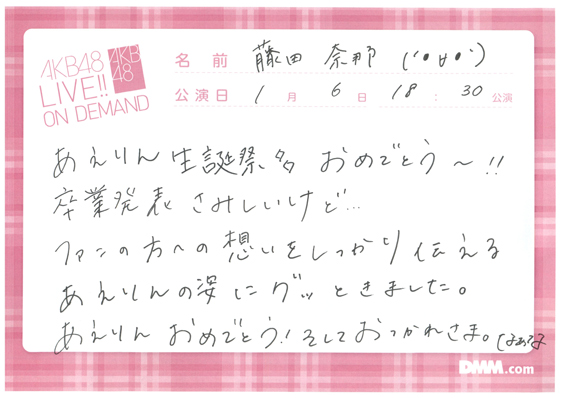 AKB48
LIVE!!
ON DEMAND
AKB
48
名前 藤田 奈那 ('•ㅂ•')
公演日 1月 6日 18:30 公演
あえりん 生誕祭 おめでとう〜!!
卒業発表 さみしいけど…
ファンの方への想いをしっかり伝える
あえりんの姿にグッときました。
あえりん おめでとう! そしておつかれさま。
DMM.com